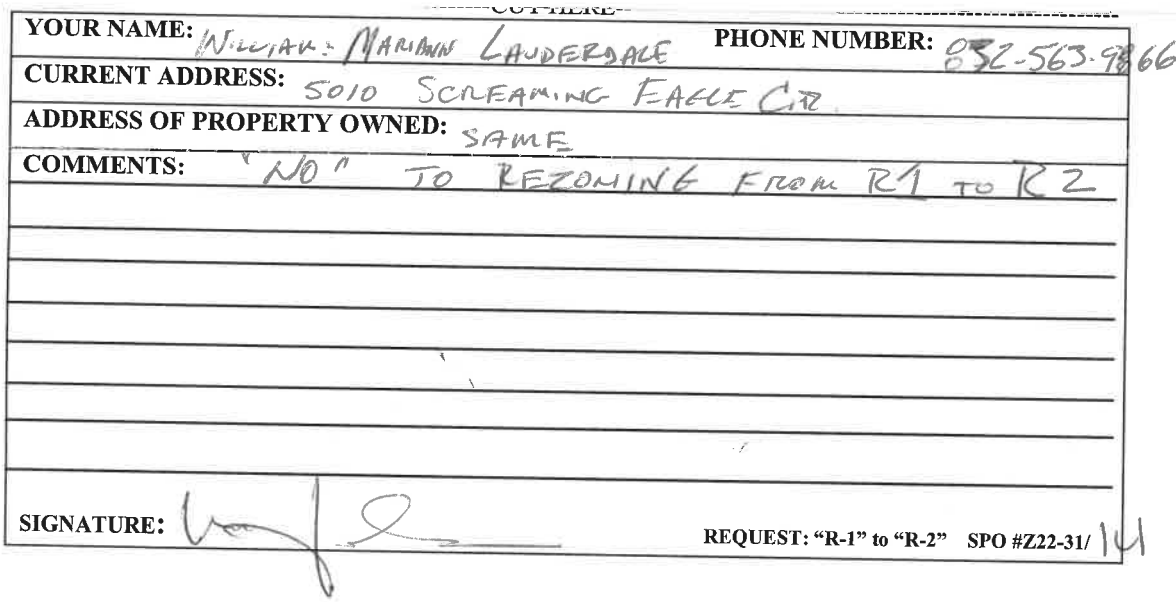 ------CUT HERE------
YOUR NAME: WILLIAM & MARIANN LAUDERDALE PHONE NUMBER: 832-563-9866
CURRENT ADDRESS: 5010 SCREAMING EAGLE CIR
ADDRESS OF PROPERTY OWNED: SAME
COMMENTS: "NO" TO REZONING FROM R1 TO R2
SIGNATURE:
REQUEST: “R-1” to “R-2” SPO #Z22-31/14